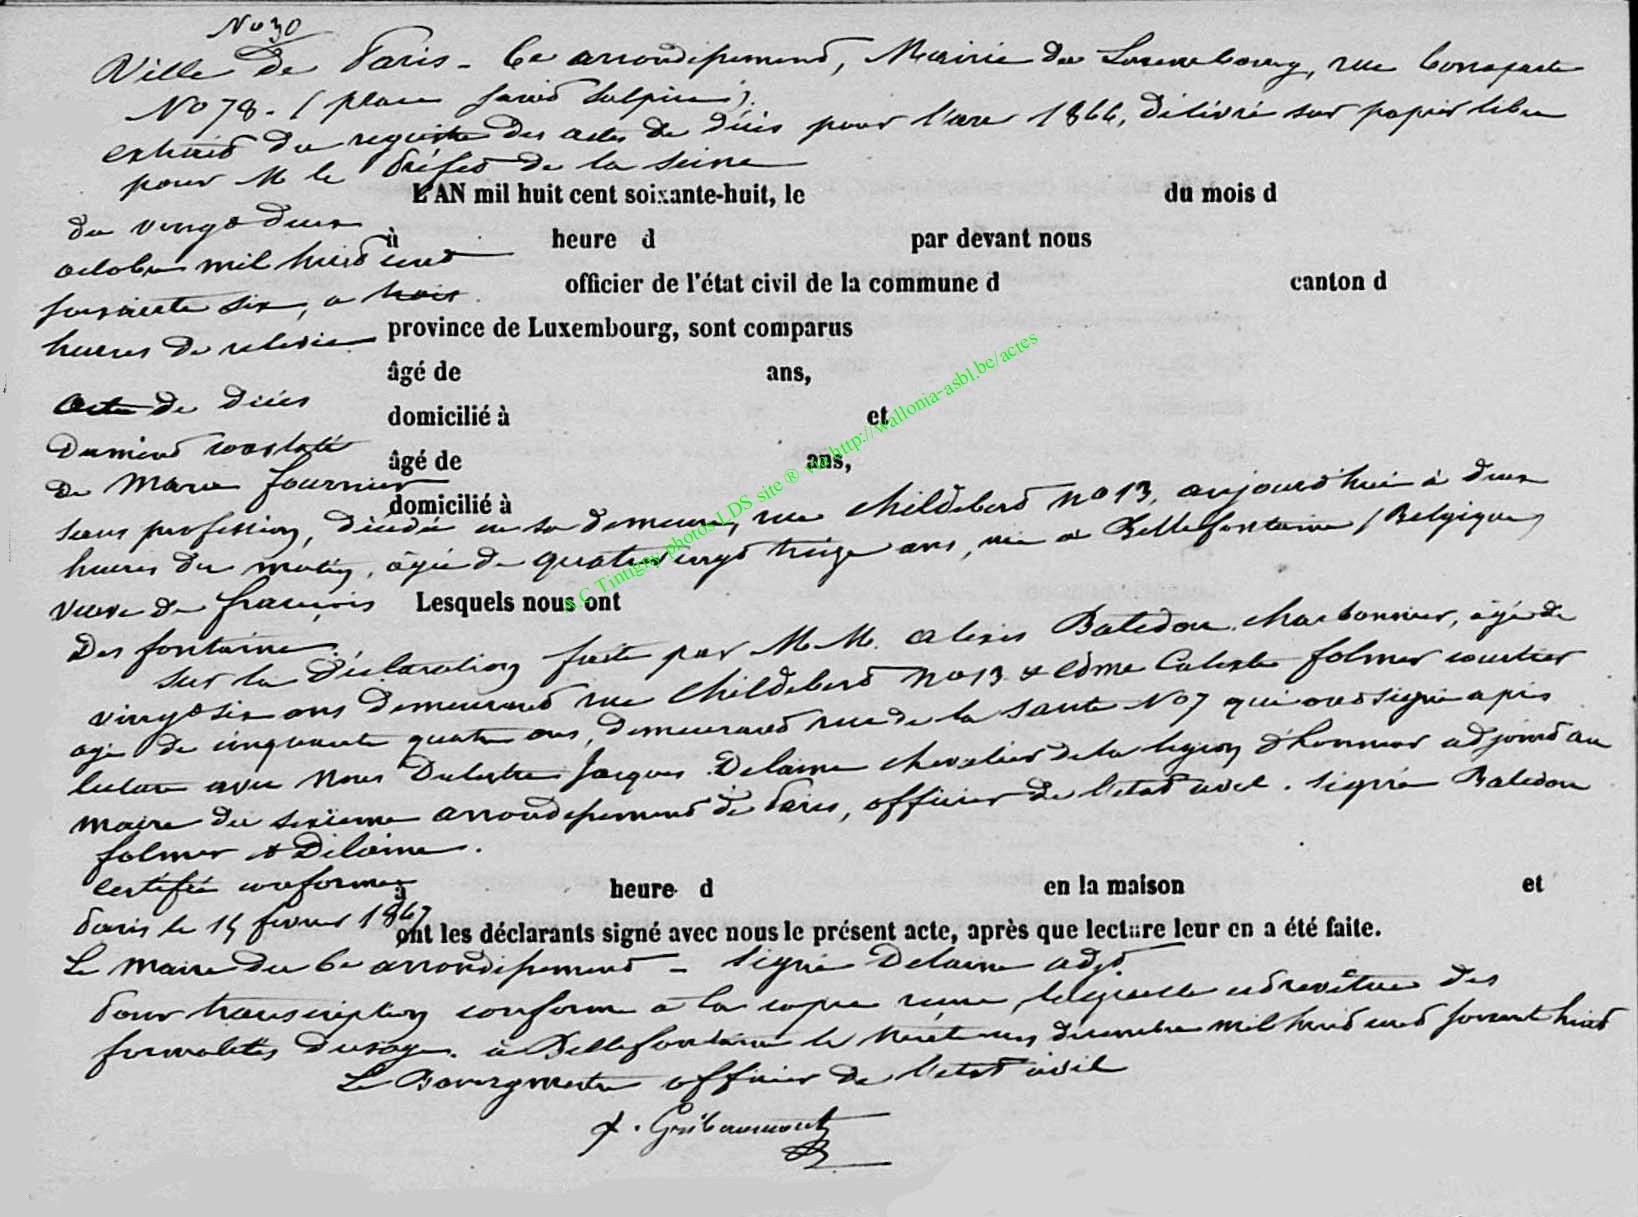 No 30
Ville de Paris - 6e arrondissement, Mairie du Luxembourg, rue Bonaparte
No 78 - (place saint Sulpice).
extrait du registre des actes de décès pour l'an 1866, délivré sur papier libre
pour M le Préfet de la Seine
L'AN mil huit cent soixante-huit, le du mois d
du vingt deux
à heure d par devant nous
octobre mil huit cent
officier de l'état civil de la commune d canton d
soixante six, a trois
province de Luxembourg, sont comparus
heures de relevée
âgé de ans,
acte de décès
domicilié à et
dument constaté
âgé de ans,
de Marie fournier
domicilié à
sans profession, décédée en sa demeure, rue Childebert no 13, aujourd'hui à deux
heures du matin, âgée de quatre vingt treize ans, née a Bellefontaine (Belgique)
veuve de françois Lesquels nous ont
Desfontaine.
sur la déclaration faite par M.M. alexis Baledou charbonnier, âgé de
vingt six ans demeurant rue Childebert no 13 & Edme Calixte folmer courtier
agé de cinquante quatre ans, demeurant rue de la santé No 7 qui ont signé après
lecture avec Nous Jacques Delaine chevalier de la légion d'honneur adjoint au
maire du sixieme arrondissement de Paris, officier de l'etat civil. signé Baledou
folmer & Delaine.
certifié conforme
à heure d en la maison et
Paris le 15 fevrier 1867
ont les déclarants signé avec nous le présent acte, après que lecture leur en a été faite.
Le Maire du 6e arrondissement - signé Delaine adjt
Pour transcription conforme a la copie reçue, laquelle est revêtue des
formalités d'usage. à Bellefontaine le décembre mil huit cent soixante huit
Le Bourgmestre officier de l'etat civil
f. Gribaumont
A.C Tintigny photos LDS site ® via http://wallonia-asbl.be/actes